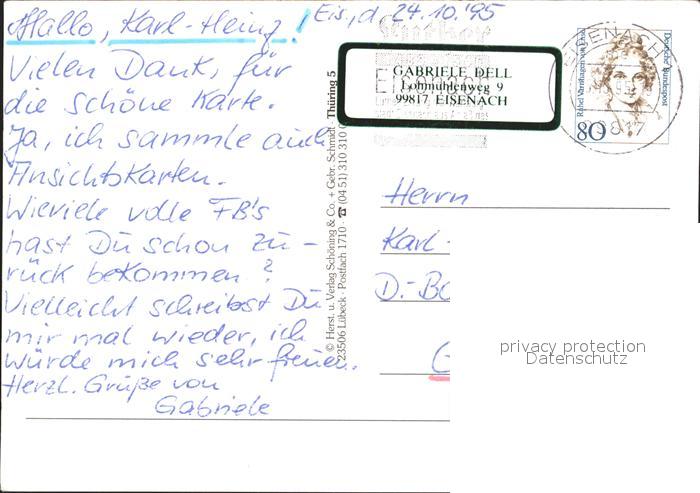 Hallo, Karl-Heinz!
Eis., d. 24.10.'95
Vielen Dank, für
die schöne Karte.
Ja, ich sammle auch
Ansichtskarten.
Wieviele volle FB's
hast Du schon zu-
rück bekommen?
Vielleicht schreibst Du
mir mal wieder, ich
würde mich sehr freuen.
Herzl. Grüße von
Gabriele
© Herst. u. Verlag Schöning & Co. + Gebr. Schmidt · Thüring 5
23506 Lübeck · Postfach 1710 · ☎ (04 51) 310 310
GABRIELE DELL
Lohmühlenweg 9
99817 EISENACH
EISENACH
99817
Rahel Varnhagen von Ense
Deutsche Bundespost
80
Herrn
Karl-
D.-Bo
privacy protection
Datenschutz